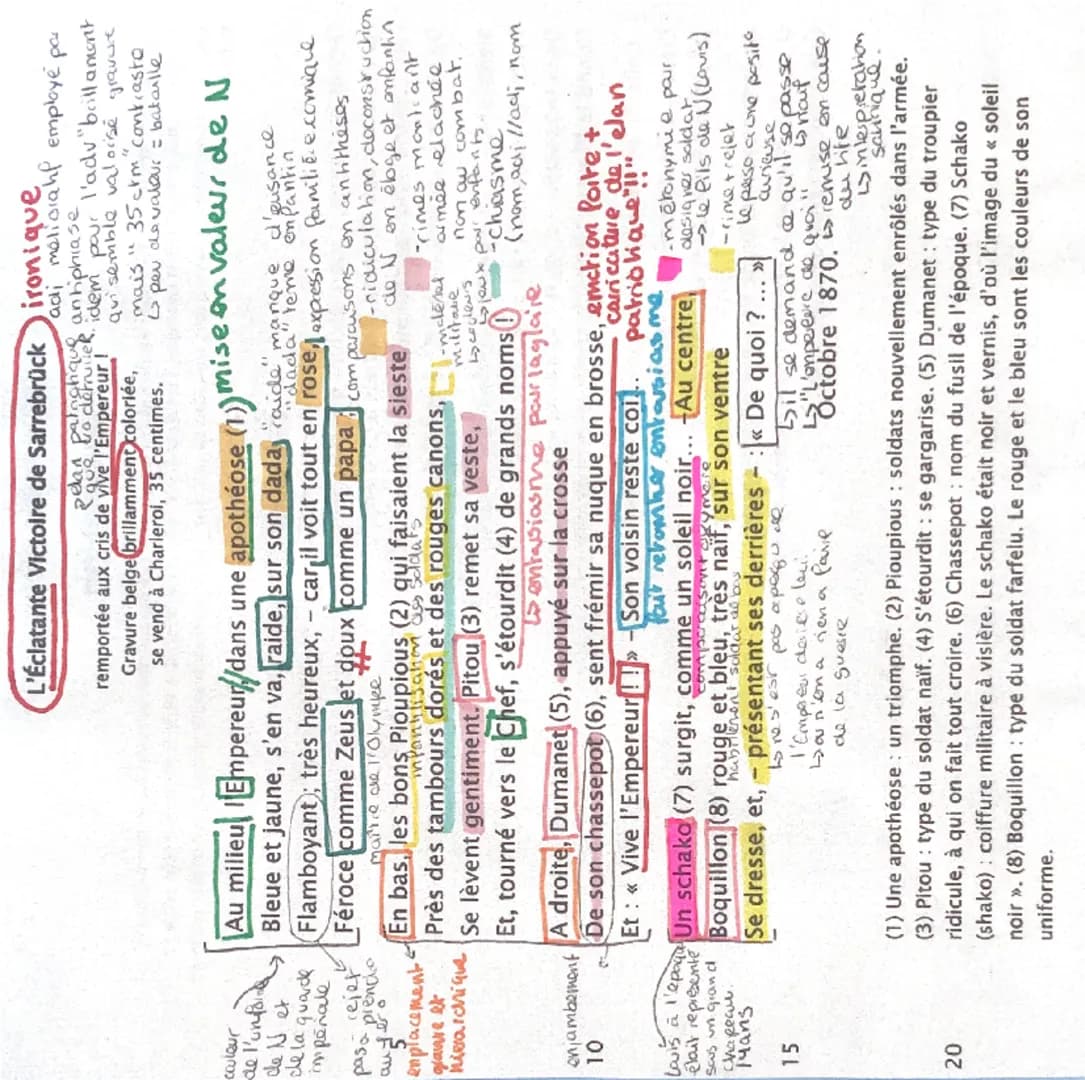 L'Éclatante Victoire de Sarrebrück
ironique
adj mélioratif employé par
antiphrase
idem pour l'adv "brillamment"
qui semble valorisé gravure
mais "35 ctm" contraste
↳ peu de valeur = bataille
remportée aux cris de vive l'Empereur !
Gravure belge brillamment coloriée,
se vend à Charleroi, 35 centimes.
Au milieu, l'Empereur, // dans une apothéose (1)
mise en valeur de N
Bleue et jaune, s'en va, raide, sur son dada
"raide" manque d'aisance
"dada" terme enfantin
Flamboyant ; très heureux, – car il voit tout en rose,
expression
Féroce comme Zeus et doux comme un papa ;
comparaisons en antithèses
- ridiculisation, déconstruction
de N en éloge et enfantin
couleur
de N et
de la garde
impériale
rejet
En bas, les bons Pioupious (2) qui faisaient la sieste
infantilisation des soldats
- rimes montrant
armée relachée
non au combat.
5
emplacement
hiérarchique
Près des tambours dorés et des rouges canons,
matériel
militaire
couleurs
- chiasme
(nom, adj // adj, nom
Se lèvent gentiment. Pitou (3) remet sa veste,
Et, tourné vers le Chef, s'étourdit (4) de grands noms !
A droite, Dumanet (5), appuyé sur la crosse
enjambement
10
De son chassepot (6), sent frémir sa nuque en brosse,
émotion forte +
caricature de l'élan
patriotique "!!"
Et : « Vive l'Empereur !! » – Son voisin reste coi...
Un schako (7) surgit, comme un soleil noir... – Au centre,
- métonymie pour
désigner soldat
→ le fils de N (Louis)
Boquillon (8) rouge et bleu, très naïf, sur son ventre
- rime + rejet
Se dresse, et, – présentant ses derrières – : « De quoi ?... »
↳ il se demande ce qu'il se passe
↳ naïf
↳ "l'empereur de quoi"
↳ remise en cause
du titre
↳ interprétation
satirique.
↳ ne s'est pas aperçu de
l'Empereur derrière lui
↳ ou n'en a rien a faire
de la guerre
Octobre 1870.
15
20
(1) Une apothéose : un triomphe. (2) Pioupious : soldats nouvellement enrôlés dans l'armée.
(3) Pitou : type du soldat naïf. (4) S'étourdit : se gargarise. (5) Dumanet : type du troupier
ridicule, à qui on fait tout croire. (6) Chassepot : nom du fusil de l'époque. (7) Schako
(shako) : coiffure militaire à visière. Le schako était noir et vernis, d'où l'image du « soleil
noir ». (8) Boquillon : type du soldat farfelu. Le rouge et le bleu sont les couleurs de son
uniforme.